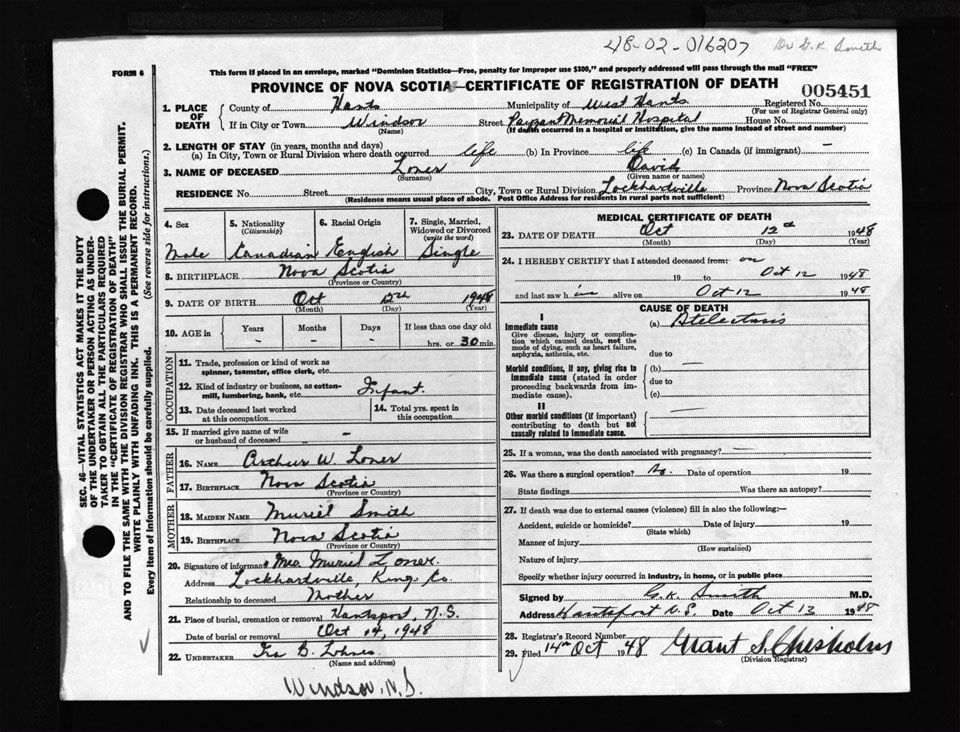 48-02-016207 Dr G.K. Smith
FORM 6
This form if placed in an envelope, marked "Dominion Statistics—Free, penalty for improper use $300," and properly addressed will pass through the mail "FREE"
PROVINCE OF NOVA SCOTIA—CERTIFICATE OF REGISTRATION OF DEATH
005451
1. PLACE OF DEATH
County of Hants Municipality of West Hants Registered No.
(For use of Registrar General only)
If in City or Town Windsor Street Payzant Memorial Hospital House No.
(Name) (If death occurred in a hospital or institution, give the name instead of street and number)
2. LENGTH OF STAY (in years, months and days)
(a) In City, Town or Rural Division where death occurred life (b) In Province life (c) In Canada (if immigrant) -
3. NAME OF DECEASED Loner David
(Surname) (Given name or names)
RESIDENCE No. Street City, Town or Rural Division Lockhartville Province Nova Scotia
(Residence means usual place of abode. Post Office Address for residents in rural parts not sufficient)
4. Sex 5. Nationality (Citizenship) 6. Racial Origin 7. Single, Married, Widowed or Divorced (write the word)
Male Canadian English Single
8. BIRTHPLACE Nova Scotia
(Province or Country)
9. DATE OF BIRTH Oct 12th 1948
(Month) (Day) (Year)
10. AGE in Years Months Days If less than one day old
- - - hrs. or 30 min.
OCCUPATION
11. Trade, profession or kind of work as spinner, teamster, office clerk, etc.
12. Kind of industry or business, as cotton-mill, lumbering, bank, etc. Infant.
13. Date deceased last worked at this occupation 14. Total yrs. spent in this occupation
15. If married give name of wife or husband of deceased -
FATHER
16. NAME Arthur W. Loner
17. BIRTHPLACE Nova Scotia
(Province or Country)
MOTHER
18. MAIDEN NAME Muriel Smith
19. BIRTHPLACE Nova Scotia
(Province or Country)
20. Signature of informant Mrs. Muriel Loner.
Address Lockhartville, Kings Co.
Relationship to deceased Mother
21. Place of burial, cremation or removal Hantsport, N.S.
Date of burial or removal Oct 14, 1948
22. UNDERTAKER Ira B. Lohnes
(Name and address)
Windsor, N.S.
MEDICAL CERTIFICATE OF DEATH
23. DATE OF DEATH Oct 12th 1948
(Month) (Day) (Year)
24. I HEREBY CERTIFY that I attended deceased from: on
19 to Oct 12 1948
and last saw him alive on Oct 12 1948
CAUSE OF DEATH
I
Immediate cause (a) Atelectasis
Give disease, injury or complication which caused death, not the mode of dying, such as heart failure, asphyxia, asthenia, etc.
due to
Morbid conditions, if any, giving rise to immediate cause (stated in order proceeding backwards from immediate cause). (b) —
due to
(c)
II
Other morbid conditions (if important) contributing to death but not causally related to immediate cause. —
25. If a woman, was the death associated with pregnancy? —
26. Was there a surgical operation? No. Date of operation 19
State findings Was there an autopsy?
27. If death was due to external causes (violence) fill in also the following:—
Accident, suicide or homicide? Date of injury 19
(State which)
Manner of injury
(How sustained)
Nature of injury
Specify whether injury occurred in industry, in home, or in public place
Signed by G.K. Smith M.D.
Address Hantsport N.S. Date Oct 12 1948
28. Registrar's Record Number
29. Filed 14th Oct 1948 Grant S. Chisholm
(Division Registrar)
SEC. 46—VITAL STATISTICS ACT MAKES IT THE DUTY
OF THE UNDERTAKER OR PERSON ACTING AS UNDER-
TAKER TO OBTAIN ALL THE PARTICULARS REQUIRED
IN THE "CERTIFICATE OF REGISTRATION OF DEATH"
AND TO FILE THE SAME WITH THE DIVISION REGISTRAR WHO SHALL ISSUE THE BURIAL PERMIT.
WRITE PLAINLY WITH UNFADING INK. THIS IS A PERMANENT RECORD.
Every item of information should be carefully supplied. (See reverse side for instructions.)